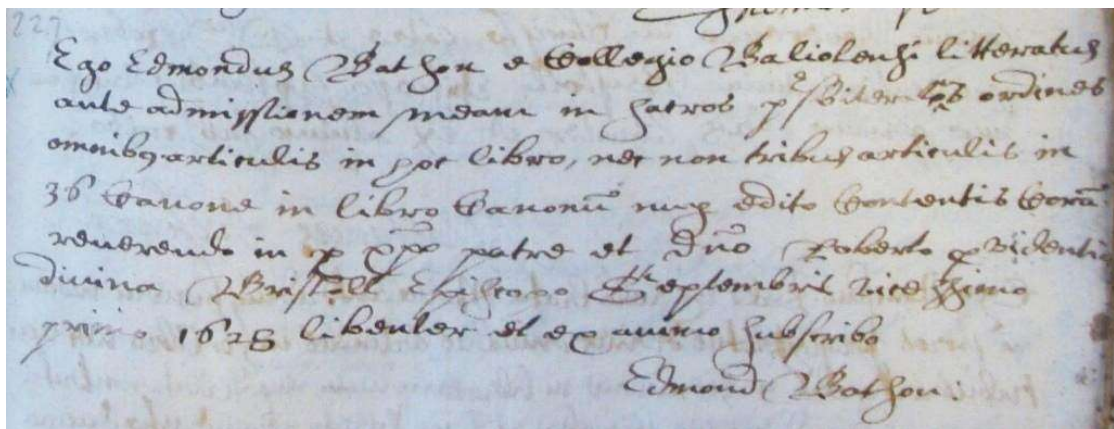 227
Ego Edmondus Bathon e Collegio Baliolensi litteratus
ante admissionem meam in sacros ordines
omnibus articulis in hoc libro, nec non tribus articulis in
36 Canone in libro Canonū nup edito Contentis Corā
reverendo in patre et Dño Roberto pvidentia
divina Bristoll Episcopo Septembris vicessimo
primo 1628 libenter et ex animo subscribo
Edmond Bathon.